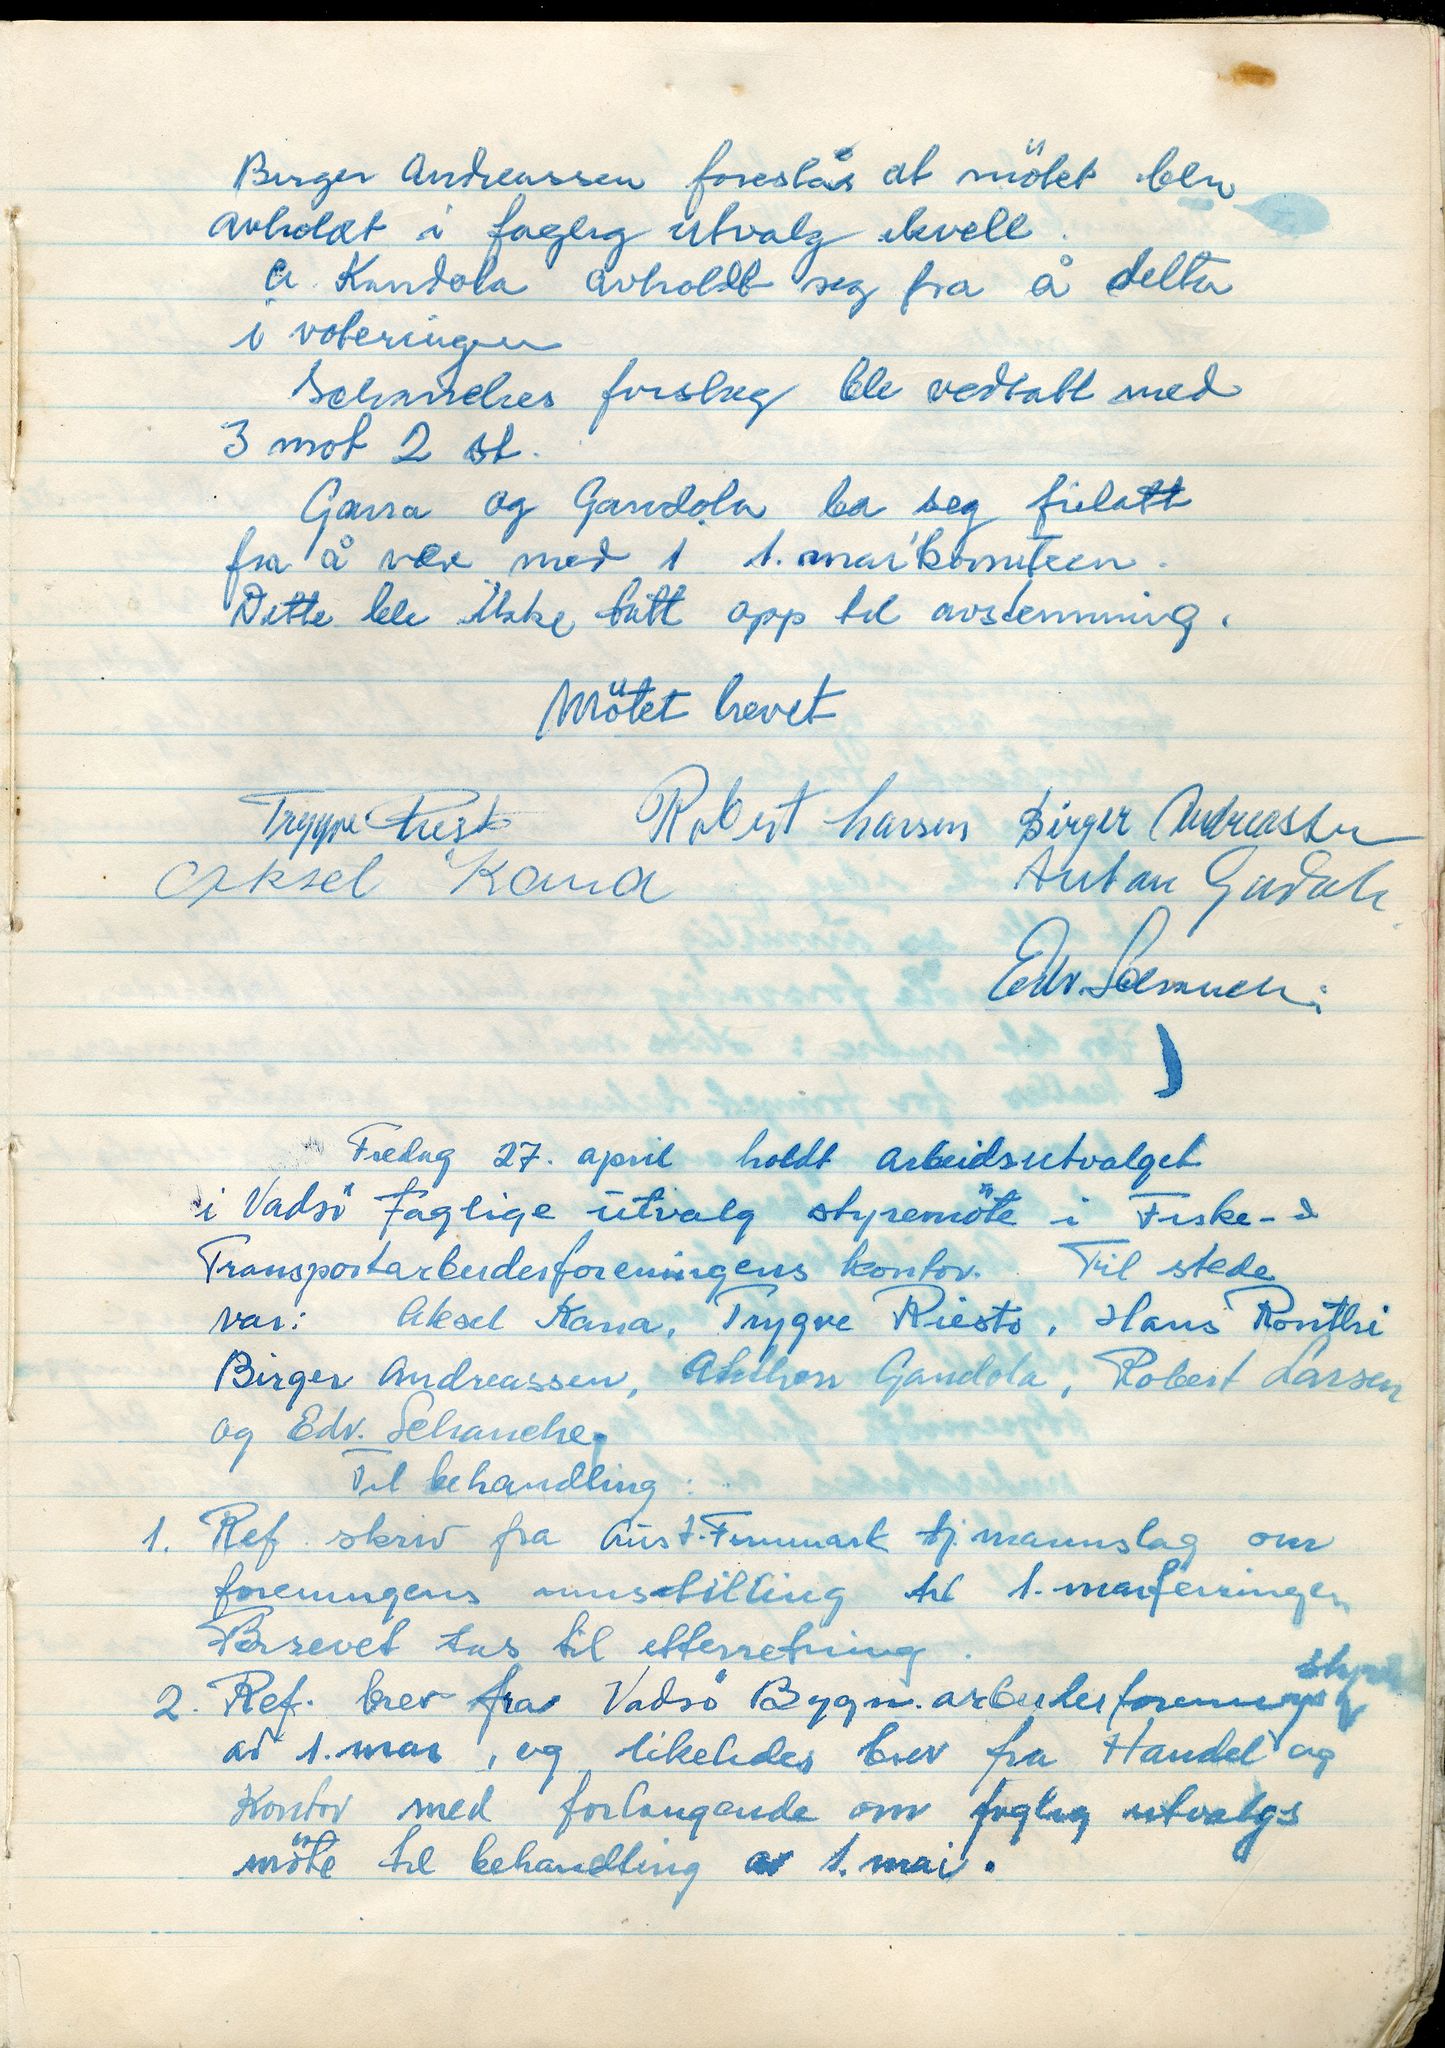 Birger Andreassen foreslås at mötet blir
avholdt i faglig utvalg ikvell.
A. Kandola avholdt seg fra å delta
i voteringen
Schanches forslag ble vedtatt med
3 mot 2 st.
Garra og Gandola ba seg fritatt
fra å være med i 1. mai komiteen.
Dette ble ikke tatt opp til avstemning.
Mötet hevet
Trygve Riesto Robert Larsen Birger Andreassen
Aksel Kana Anton Gandola
Edv. Schanche
Fredag 27. april holdt arbeidsutvalget
i Vadsö Faglige utvalg styremöte i Fiske- &
Transportarbeiderforeningens kontor. Til stede
var: Aksel Kana, Trygve Riesto, Hans Ronthi
Birger Andreassen, Anthon Gandola, Robert Larsen
og Edv. Schanche.
Til behandling:
1. Ref. skriv fra Aust-Finnmark tj.mannslag om
foreningens innstilling til 1. maifeiringen
Brevet tas til etterretning.
2. Ref. brev fra Vadsö Bygn. arbeiderforenings
av 1. mai, og likeledes brev fra Handel og
Kontor med forlangende om faglig utvalgs
möte til behandling av 1. mai.